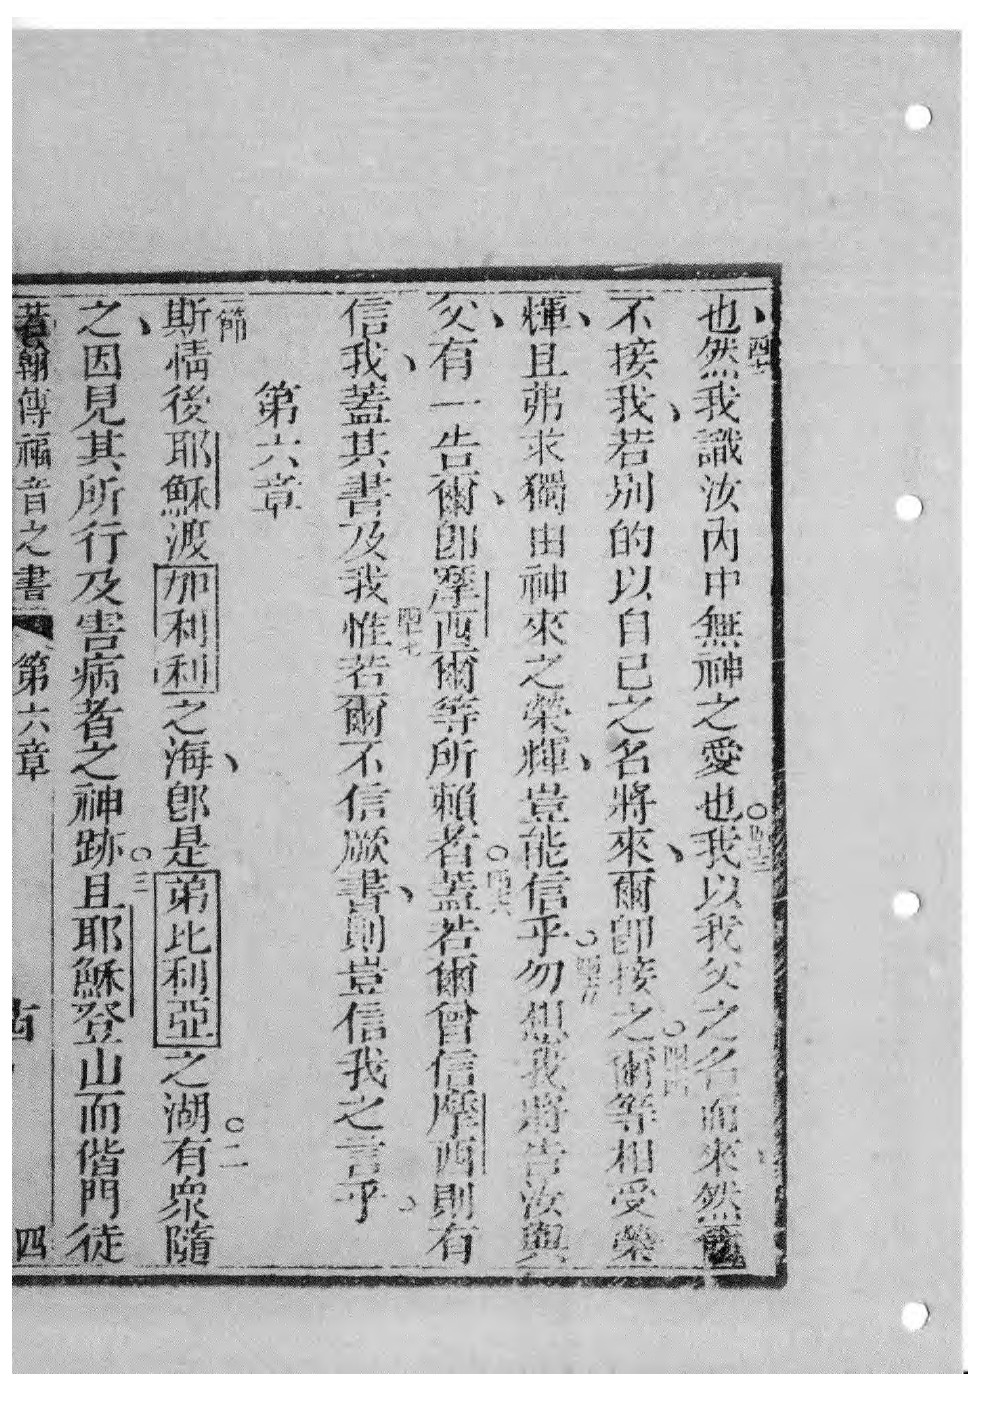 也四二然我識汝內中無神之愛也。四三我以我父之名而來然爾
不接我、若別的以自己之名將來、爾即接之。四四爾等相受榮
輝、且弗求獨由神來之榮輝、豈能信乎。四五勿想我將告汝與
父、有一告爾、即摩西爾等所賴者。四六蓋若爾曾信摩西則有
信我、蓋其書及我四七惟若爾不信厥書、則豈信我之言乎、
第六章
一節斯情後耶穌渡加利利之海、即是第比利亞之湖。二有眾隨
之、因見其所行及害病者之神跡。三且耶穌登山而偕門徒
若翰傳福音之書 第六章 古 四